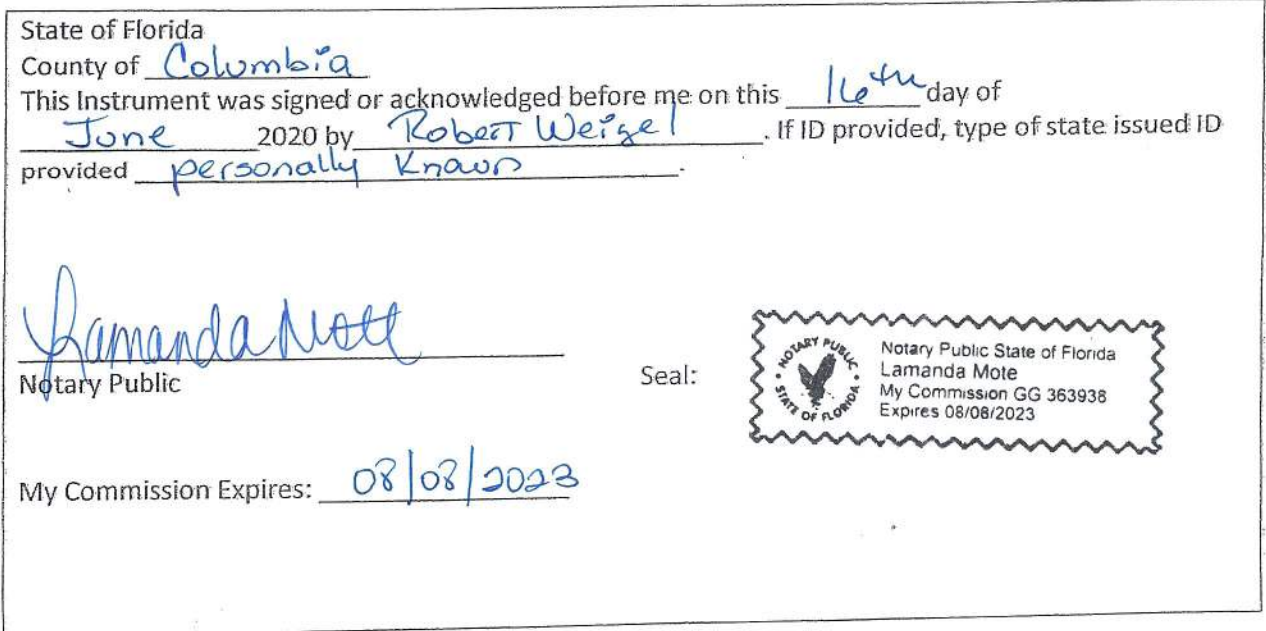 State of Florida
County of Columbia
This Instrument was signed or acknowledged before me on this 16th day of
June 2020 by Robert Weigel. If ID provided, type of state issued ID
provided personally Known.
Lamanda Mote
Notary Public
Seal:
NOTARY PUBLIC
STATE OF FLORIDA
Notary Public State of Florida
Lamanda Mote
My Commission GG 363938
Expires 08/08/2023
My Commission Expires: 08/08/2023